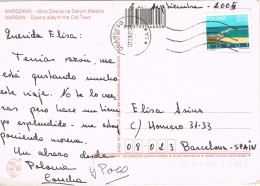 WARSZAWA - Ulica Dawna na Starym Mieście
WARSAW - Dawna alley in the Old Town
5 - septiembre - 2005
Querida Elisa:
Tenías razón, me
está gustando mucho
este viaje. No te lo
pero hace un tiem
po espléndido - me estoy
poniendo morena.
Un abrazo desde
Polonia
Concha y Paco
Elisa Asins
C/ Homero 31-33
08023 Barcelona - SPAIN